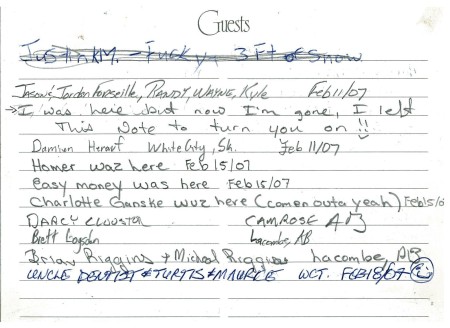 Guests
Justin KM. - Fucky. 3 Ft of Snow
Jason, Jordon Forseille, RANDY, WAYNE, Kyle Feb 11/07
→ I was here but now I'm gone, I left
This Note to turn you on!!
Damian Herauf White City, Sk. Feb 11/07
Homer waz here Feb 15/07
easy money was here Feb 15/07
Charlotte Ganske wuz here (comen outa yeah) Feb 15/0
DARCY CLOUSTER CAMROSE AB
Brett Logsdon Lacombe, AB
Brian Riggins + Michael Riggins Lacombe, AB
UNCLE DENTIST & TURTIS & MAURICE WCT. FEB 18/07